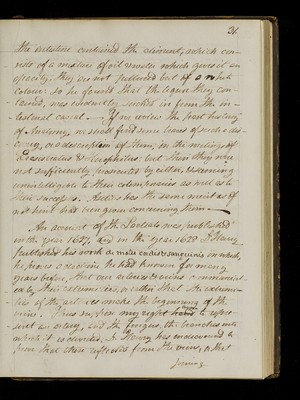 31.
the intestine contained the aliment, which con-
sists of a mixture of oil & water which gives it an
opacity; they are not pellucid but of a white
colour: so he found that the liquor they con-
tained, was evidently sucked in from the in-
testinal canal. — If we review the past history
of Anatomy, we shall find some traces of such a dis-
covery, or a description of them, in the writings of
Erasistratus & Herophilus; but then they were
not sufficiently prosecuted by either, & seeming
unintelligible to their cotemporaries as well as to
their successors. has the same merit as if
a hint had been given concerning them. —
An account of the Lacteals was published
in the year 1627, and in the year 1628 Harvey
published his work de motu cordis & sanguinis in which
he proves a doctrine he had known for many
years before, that our arteries & veins communicate
by their extremities, or rather that the extremi-
ties of the arteries make the beginning of the
veins. Thus suppose my right hand to repre-
sent an artery, and the fingers, the branches into
which it is divided, Dr. Harvey has endeavoured to
prove that these reflected form the veins, or that
joining